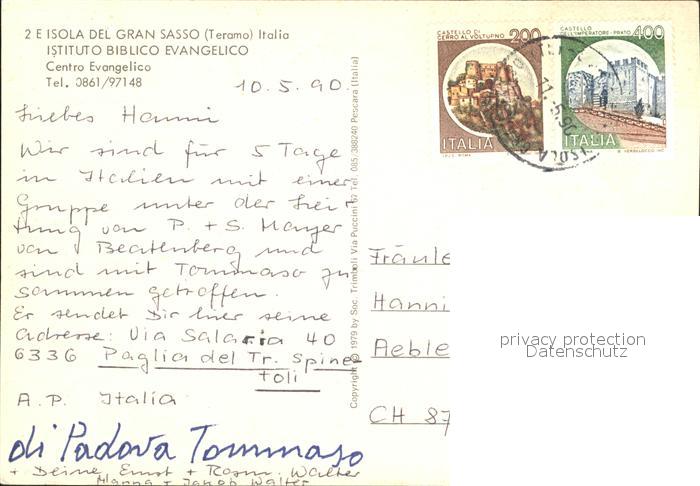 2 E ISOLA DEL GRAN SASSO (Teramo) Italia
ISTITUTO BIBLICO EVANGELICO
Centro Evangelico
Tel. 0861/97148
10.5.90.
Liebes Hanni
Wir sind für 5 Tage
in Italien mit einer
Gruppe unter der Lei-
tung von P. + S. Mayer
von Beatenberg und
sind mit Tommaso zu
sammen getroffen.
Er sendet Dir hier seine
Adresse: Via Salaria 40
6336 Paglia del Tr. Spine-
toli
A.P. Italia
di Padova Tommaso
+ Deine Ernst + Rosm. Walter
Hanna + Jakob Walter
Copyright © 1979 by Soc. Trimboli Via Puccini 57 Tel. 085/388240 Pescara (Italia)
CASTELLO DI
CERRO AL VOLTURNO
200
ITALIA
I.P.Z.S. ROMA
CASTELLO
DELL'IMPERATORE - PRATO
400
ITALIA
11.5.90
ISOLA
Fräule
Hanni
Aeble
CH 87
privacy protection
Datenschutz